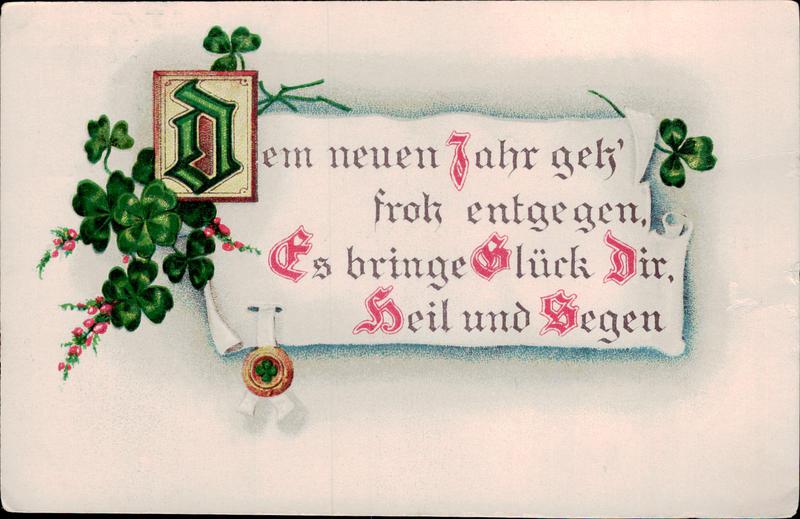 Dem neuen Jahr geh'
froh entgegen,
Es bringe Glück Dir,
Heil und Segen